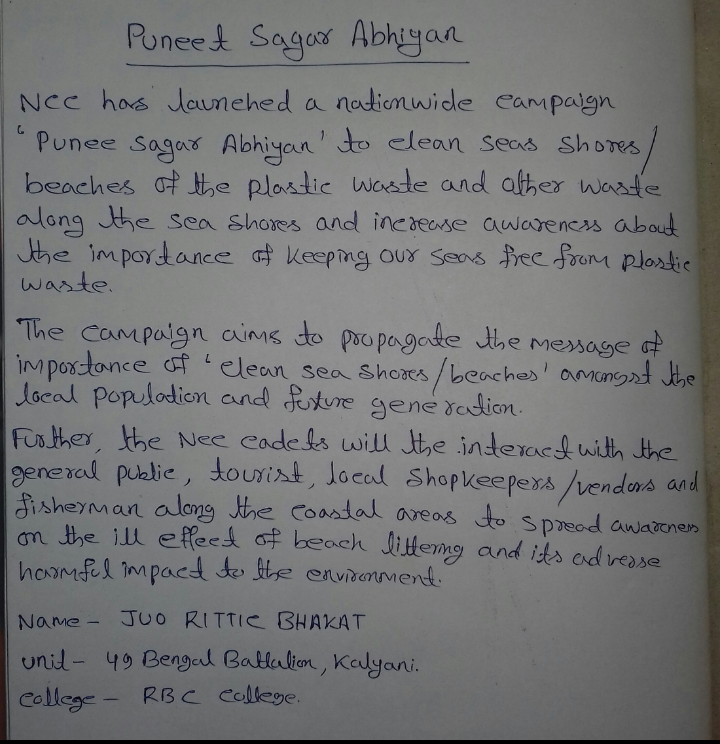 Puneet Sagar Abhiyan
NCC has launched a nationwide campaign
'Punee Sagar Abhiyan' to clean seas shores/
beaches of the plastic waste and other waste
along the sea shores and increase awareness about
the importance of keeping our seas free from plastic
waste.
The campaign aims to propagate the message of
importance of 'clean sea shores/beaches' amongst the
local population and future generation.
Further, the NCC cadets will the interact with the
general public, tourist, local shopkeepers/vendors and
fisherman along the coastal areas to spread awareness
on the ill effect of beach littering and its adverse
harmful impact to the environment.
Name - JUO RITTIC BHAKAT
unit - 49 Bengal Battalion, Kalyani.
college - RBC College.